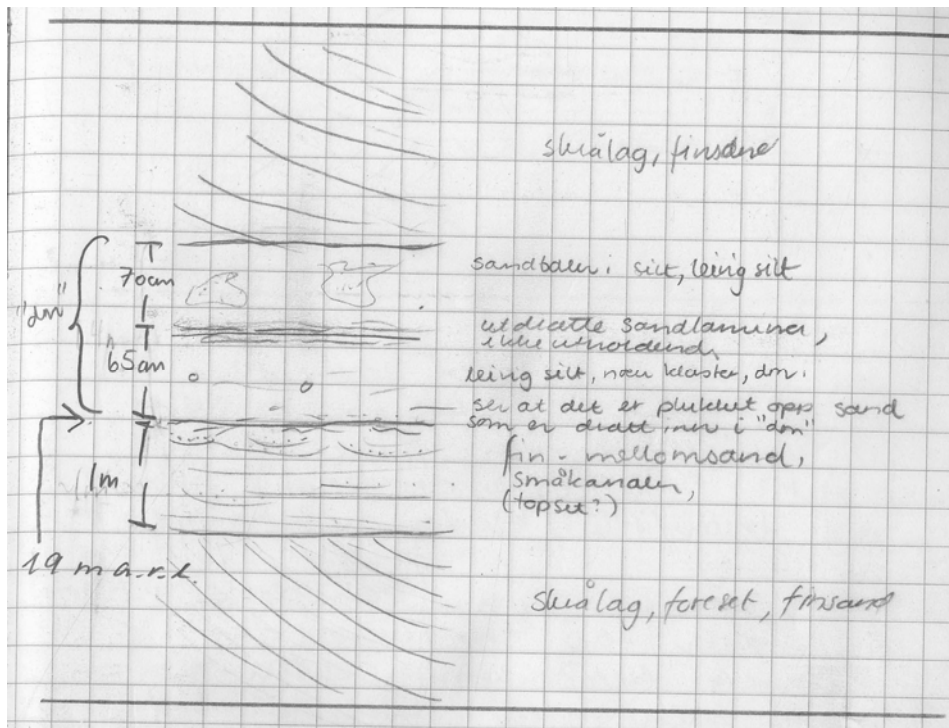 skrålag, finsand
sandboller i silt, leirig silt
"dm"
70cm
utdratte sandlaminer,
ikke utholdende
65cm
leirig silt, noen klaster, dm.
ser at det er plukket opp sand
som er dratt inn i "dm"
fin - mellomsand,
småkanaler,
(topset?)
1m
19 m a.r.l.
skrålag, foreset, finsand